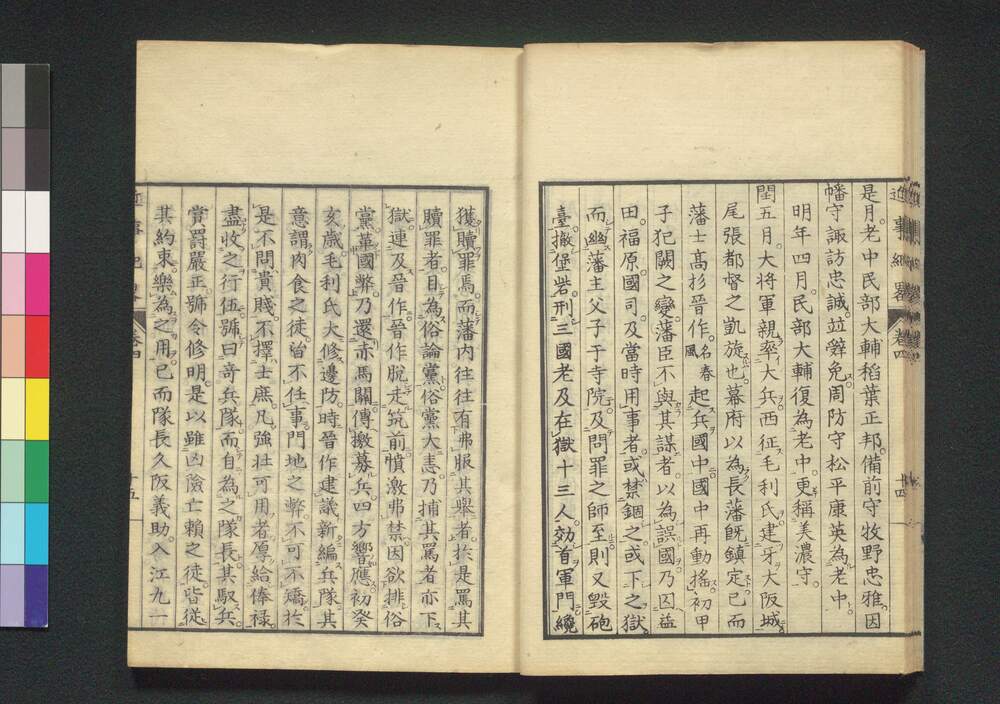 是月。老中民部大輔稻葉正邦。備前守牧野忠雅。因
幡守諏訪忠誠。竝辭免。周防守松平康英為老中。
明年四月。民部大輔復為老中。更稱美濃守。
閏五月。大将軍親率大兵西征毛利氏建牙大阪城
尾張都督之凱旋也。幕府以為長藩既鎮定已而
藩士高杉晉作。名春風起兵國中。國中再動搖。初甲
子犯闕之變。藩臣不與其謀者。以為誤國乃囚益
田。福原。國司。及當時用事者。或禁錮之。或下之獄。
而幽藩主父子于寺院。及問罪之師至則又毀砲
臺。撤堡砦刑三國老及在獄十三人。効首軍門纔
近事紀畧 卷四 十四
獲贖罪焉。而藩内往往有弗服其舉者。於是罵其
贖罪者。目為俗論黨。俗黨大恚。乃捕其罵者亦下
獄。連及晉作。晉作脱走筑前憤激弗禁。因欲排俗
黨。革國弊。乃還赤馬關。傳檄募兵。四方響應。初癸
亥歳。毛利氏大修邊防。時晉作建議新編兵隊。其
意謂肉食之徒。皆不任事。門地之弊不可不矯於
是不問貴賤。不擇士庶。凡強壮可用者。厚給俸禄
盡收之行伍。號曰奇兵隊。而自為之隊長。其馭兵
賞罰嚴正號令修明。是以雖凶險亡賴之徒。皆從
其約束。樂為之用。已而隊長久阪義助。入江九一
十五